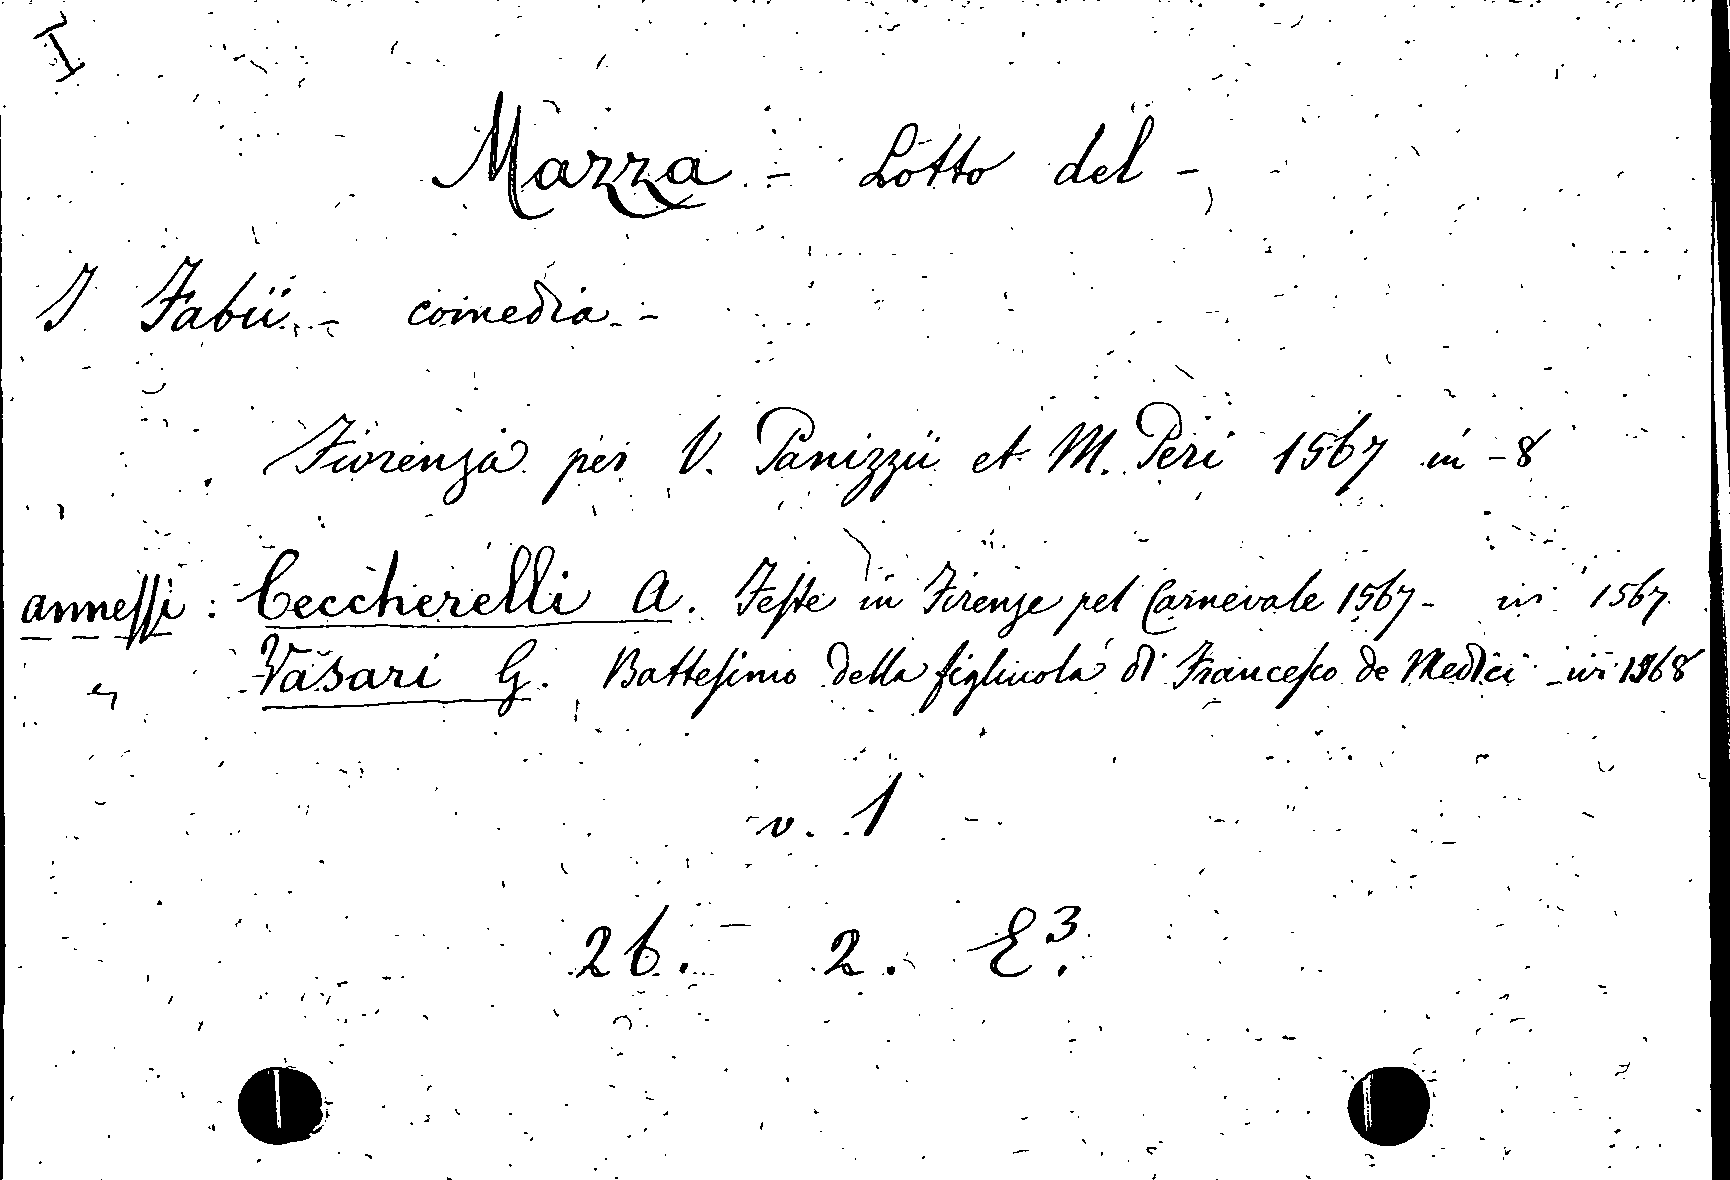 I
Mazza - Lotto del -
I Fabii - comedia -
Fiorenza per V. Panizzii et M. Peri 1567 in-8
annessi : Ceccherelli A. Feste in Firenze pel Carnevale 1567 - ivi 1567
" Vasari G. Battesimo della figliuola di Francesco de Medici - ivi 1568
v. 1
26. 2. E³.